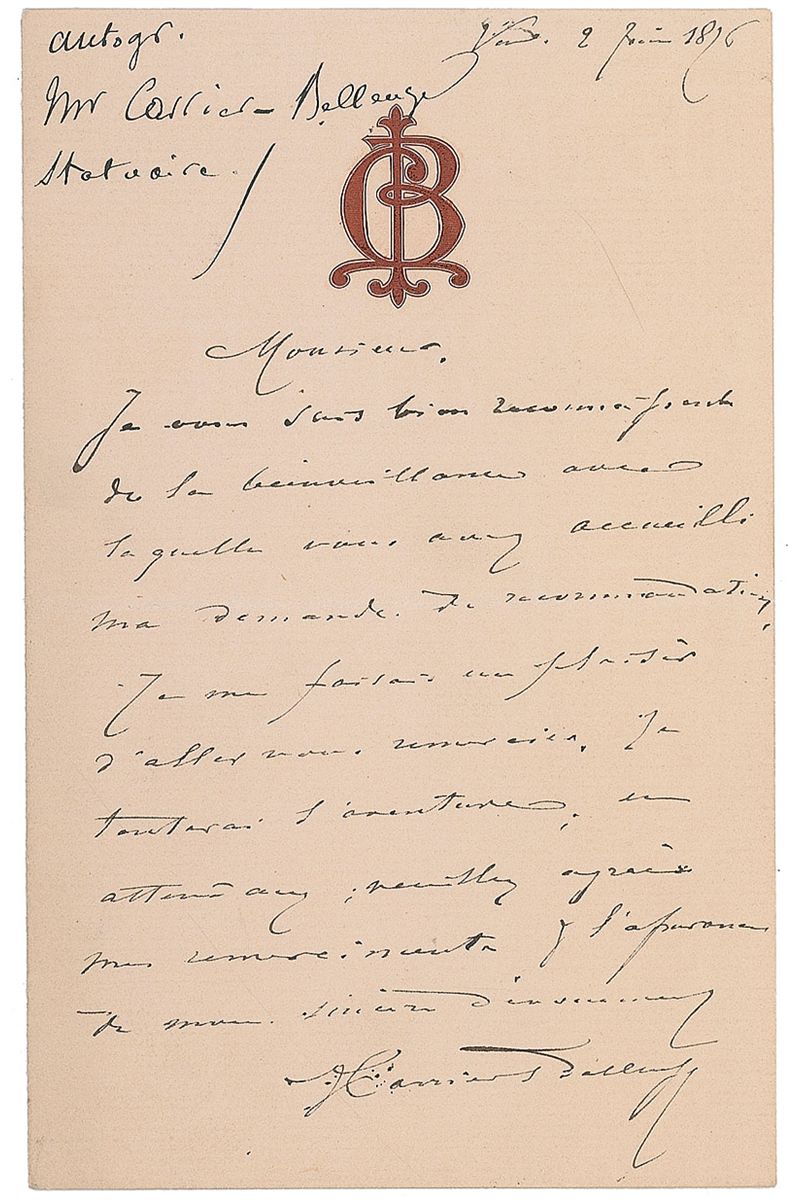 autogr.
2 Juin 1876
Mr Carrier-Belleuse
Statuaire.
CB
Monsieur,
Je vous suis bien reconnaissant
de la bienveillance avec
laquelle vous avez accueilli
ma demande de recommandation,
Je me faisais un plaisir
d'aller vous remercier, Je
tenterai l'aventure, en
attendant, veuillez agréer
mes remerciements & l'assurance
de mon sincère dévouement
A Carrier Belleuse